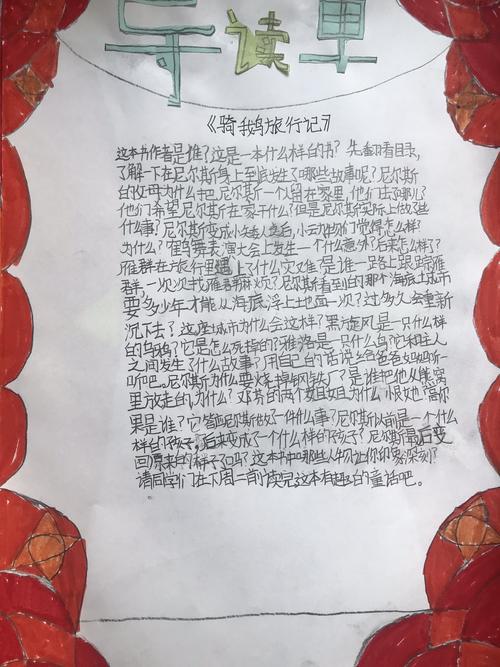 导读单
《骑鹅旅行记》
这本书作者是谁？这是一本什么样的书？先翻看目录，
了解一下在尼尔斯身上到底发生了哪些故事呢？尼尔斯
的父母为什么把尼尔斯一个留在家里，他们去哪儿？
他们希望尼尔斯在家干什么？但是尼尔斯实际上做了些
什么事？尼尔斯变成小矮人之后，小云他们觉得怎么样？
为什么？鹤舞表演大会上发生一个什么意外？后来怎么样了？
雁群在旅行里遇上了什么灾难？是谁一路上跟踪雁
群，一次次找雁群麻烦？尼尔斯看到的那个海底城市
要多少年才能从海底浮上地面一次？过多久会重新
沉下去？这座城市为什么会这样？黑旋风是一只什么样
的乌鸦？它是怎么死掉的？雅洛是一只什么鸟？它和主人
之间发生了什么故事？用自己的话说给爸爸妈妈听一
听吧。尼尔斯为什么要烧掉钢铁厂？是谁把他从熊窝
里放走的？为什么？邓芬的两个姐姐为什么小恨她？高尔
果是谁？它帮尼尔斯做了一件什么事？尼尔斯以前是一个什么
样的孩子？后来变成了一个什么样的孩子？尼尔斯最后变
回原来的样子了吗？这本书中哪些人物让你印象深刻？
请同学们在下周二前读完这本有趣的童话吧。